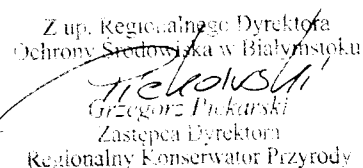 Z up. Regionalnego Dyrektora
Ochrony Środowiska w Białymstoku
Piekarski
Grzegorz Piekarski
Zastępca Dyrektora
Regionalny Konserwator Przyrody